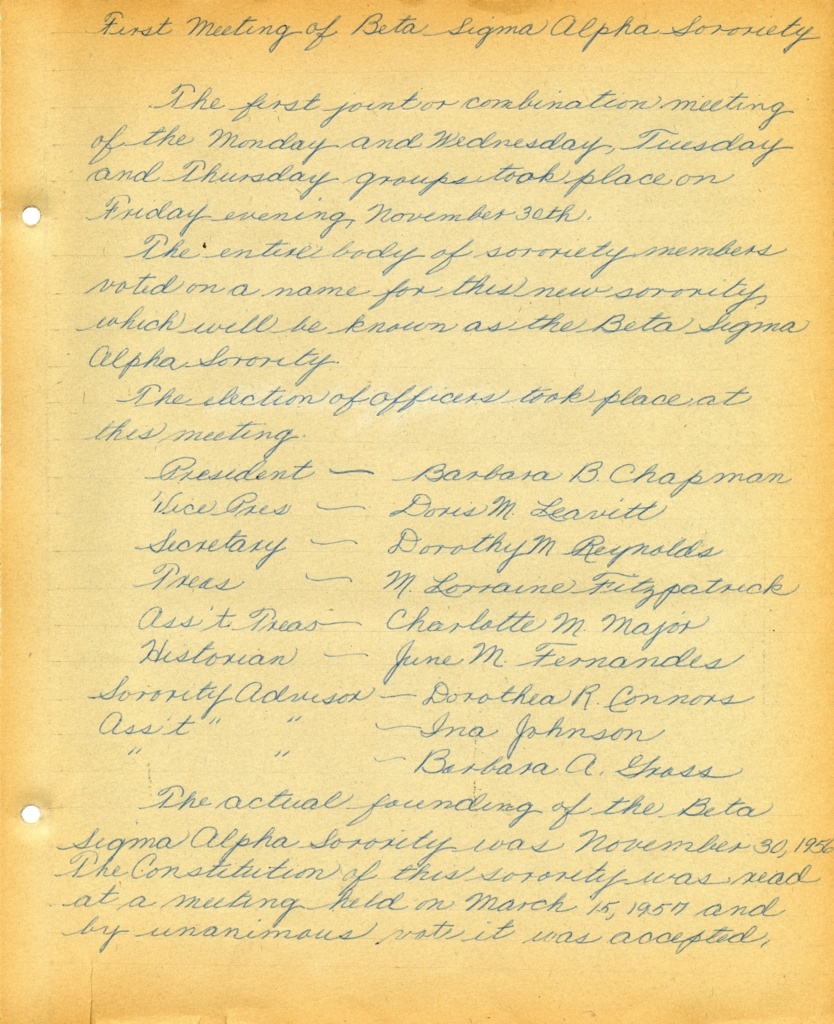 First Meeting of Beta Sigma Alpha Sororiety
The first joint or combination meeting
of the Monday and Wednesday, Tuesday
and Thursday groups took place on
Friday evening, November 30th.
The entire body of sororiety members
voted on a name for this new sorority,
which will be known as the Beta Sigma
Alpha Sorority.
The election of officers took place at
this meeting.
President — Barbara B. Chapman
Vice Pres — Doris M. Leavitt
Secretary — Dorothy M Reynolds
Treas — M. Lorraine Fitzpatrick
Ass't. Treas — Charlotte M. Major
Historian — June M. Fernandes
Sorority Advisor — Dorothea R. Connors
Ass't " " — Ina Johnson
" " — Barbara A. Gross
The actual founding of the Beta
Sigma Alpha Sorority was November 30, 1956
The Constitution of this sorority was read
at a meeting held on March 15, 1957 and
by unanimous vote it was accepted.